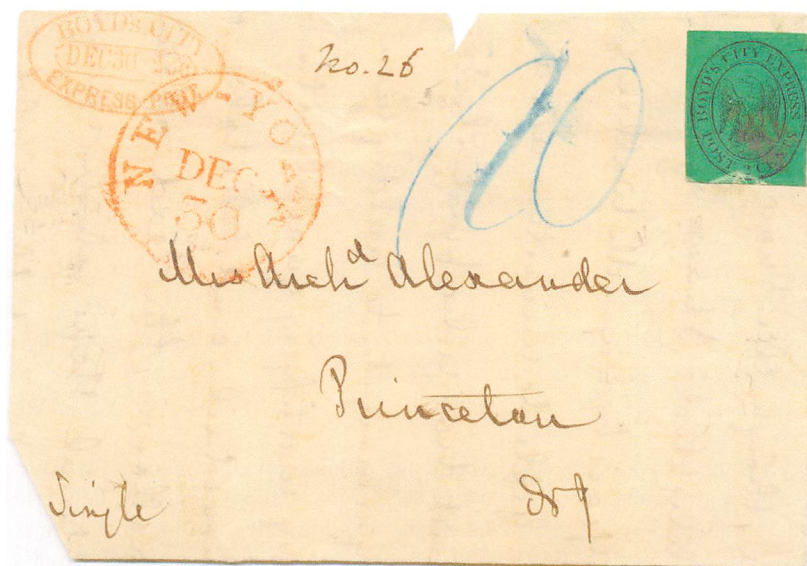 BOYD'S CITY
DEC 30
EXPRESS POST
No. 26
NEW-YO
DEC
30
10
BOYD'S CITY EXPRESS
POST
2 CTS
Mrs Archd Alexander
Princeton
NJ
Single